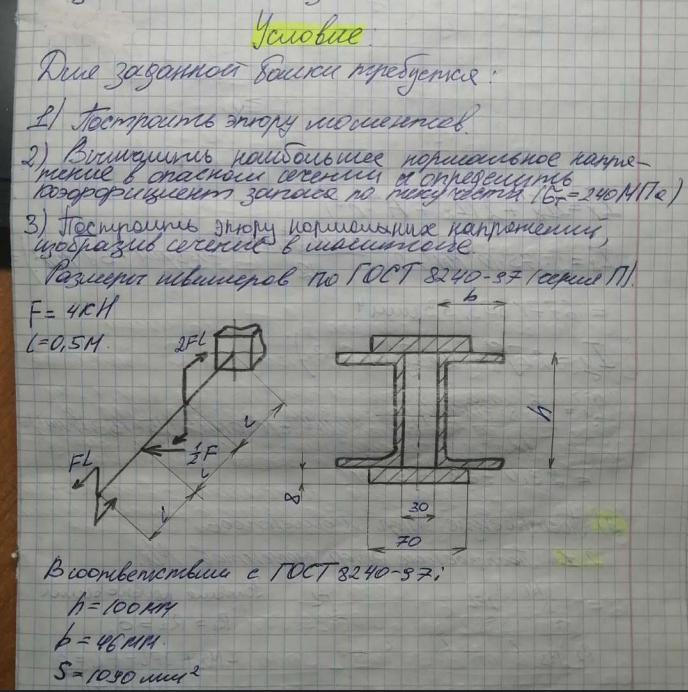 Условие.
Для заданной балки требуется:
1) Построить эпюру моментов.
2) Вычислить наибольшее нормальное напря-
жение в опасном сечении и определить
коэффициент запаса по текучести (σт=240МПа)
3) Построить эпюру нормальных напряжений,
изобразив сечение в масштабе.
Размеры швеллеров по ГОСТ 8240-97 (серия П).
F=4кН
l=0,5м.
2Fl
b
l
h
½F
Fl
l
l
8
30
70
В соответствии с ГОСТ 8240-97:
h=100мм
b=46мм.
S=1090мм²